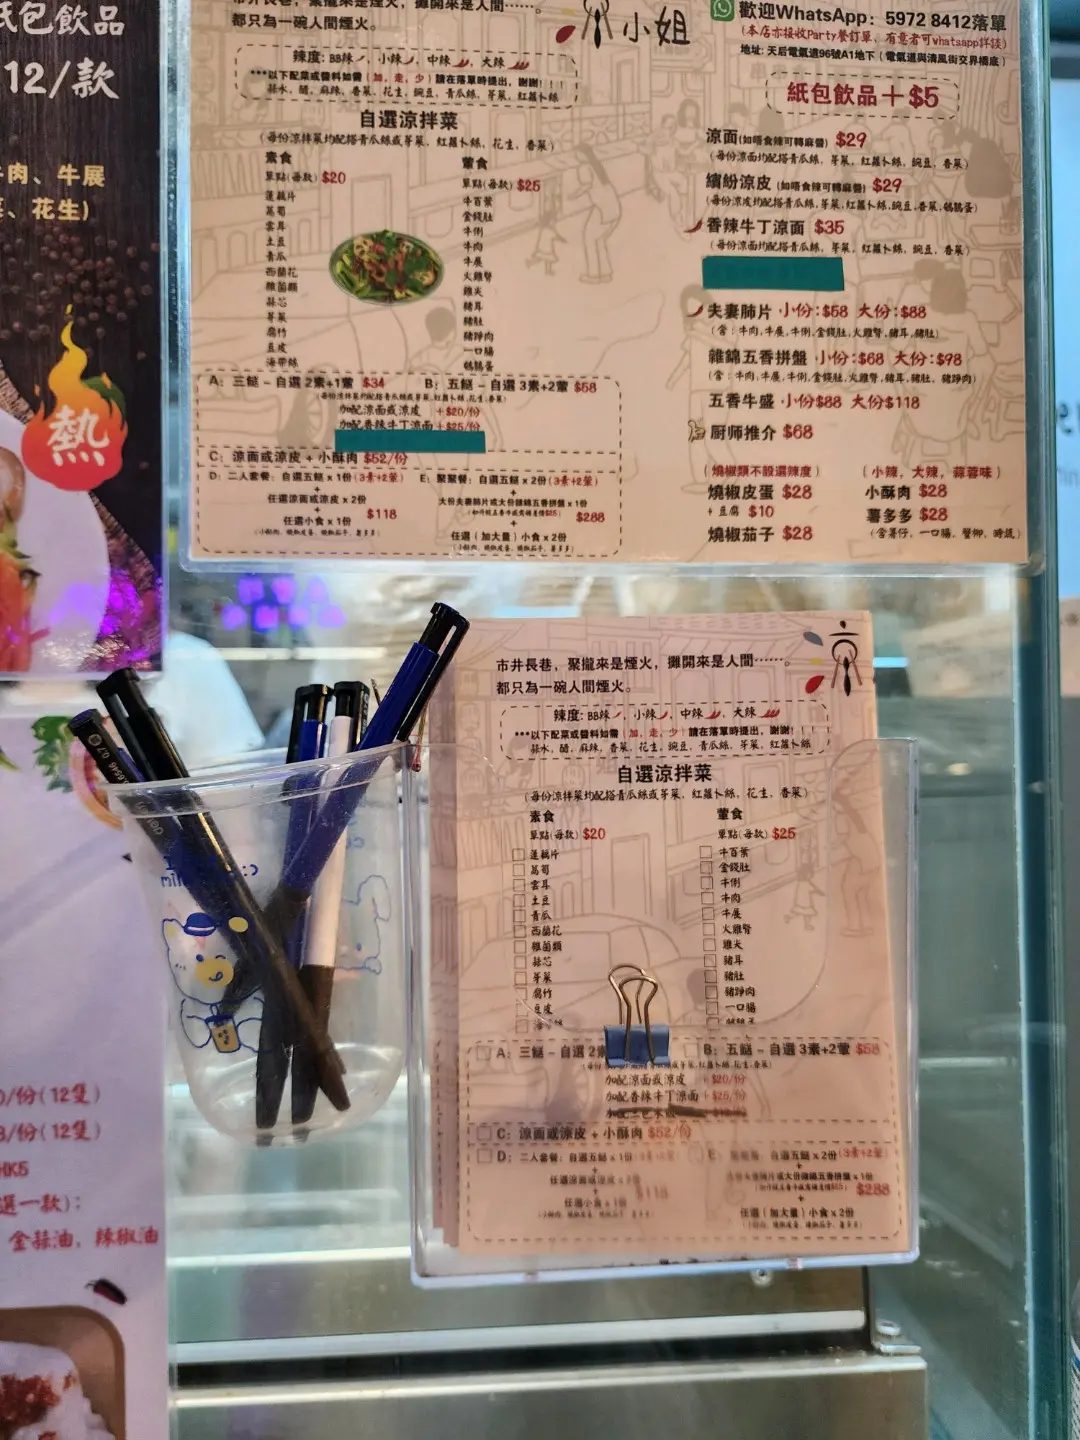 紙包飲品
12/款
牛肉、牛展
、花生)
熱
都只為一碗人間煙火。
小姐
辣度: BB辣 小辣 中辣 大辣
***以下配菜或醬料如需(加, 走, 少)請在落單時提出, 謝謝!
蒜水, 醋, 麻辣, 香菜, 花生, 豌豆, 青瓜絲, 芽菜, 紅蘿卜絲
自選涼拌菜
(每份涼拌菜均配搭青瓜絲或芽菜, 紅蘿卜絲, 花生, 香菜)
素食
單點(每款) $20
蓮藕片
萵筍
雲耳
土豆
青瓜
西蘭花
雜菌類
蒜芯
芽菜
腐竹
豆皮
海帶絲
葷食
單點(每款) $25
牛百葉
金錢肚
牛脷
牛肉
牛展
火雞腎
雞尖
豬耳
豬肚
豬踭肉
一口腸
鵪鶉蛋
A: 三餸 – 自選 2素+1葷 $34
B: 五餸 – 自選 3素+2葷 $58
(每份涼拌菜均配搭青瓜絲或芽菜, 紅蘿卜絲, 花生, 香菜)
加配涼面或涼皮 +$20/份
加配香辣牛丁涼面 +$25/份
C: 涼面或涼皮 + 小酥肉 $52/份
D: 二人套餐: 自選五餸 x 1份 (3素+2葷)
+
任選涼面或涼皮 x 2份
+
任選小食 x 1份
$118
E: 聚聚餐: 自選五餸 x 2份 (3素+2葷)
+
大份夫妻肺片或大份雜錦五香拼盤 x 1份
+
$288
任選 (加大量) 小食 x 2份
歡迎WhatsApp: 5972 8412落單
(本店亦接收Party餐訂單, 有意者可whatsapp詳談)
地址: 天后電氣道96號A1地下 (電氣道與清風街交界橋底)
紙包飲品+$5
涼面(如唔食辣可轉麻醬) $29
(每份涼面均配搭青瓜絲, 芽菜, 紅蘿卜絲, 豌豆, 香菜)
繽紛涼皮 (如唔食辣可轉麻醬) $29
(每份涼皮均配搭青瓜絲, 芽菜, 紅蘿卜絲, 豌豆, 香菜, 鵪鶉蛋)
香辣牛丁涼面 $35
(每份涼面均配搭青瓜絲, 芽菜, 紅蘿卜絲, 豌豆, 香菜)
夫妻肺片 小份:$58 大份:$88
(含: 牛肉, 牛展, 牛脷, 金錢肚, 火雞腎, 豬耳, 豬肚)
雜錦五香拼盤 小份:$68 大份:$98
(含: 牛肉, 牛展, 牛脷, 金錢肚, 火雞腎, 豬耳, 豬肚, 豬踭肉)
五香牛盛 小份$88 大份$118
厨师推介 $68
(燒椒類不設選辣度)
燒椒皮蛋 $28
+ 豆腐 $10
燒椒茄子 $28
(小辣, 大辣, 蒜蓉味)
小酥肉 $28
薯多多 $28
市井長巷, 聚攏來是煙火, 攤開來是人間……。
都只為一碗人間煙火。
辣度: BB辣 小辣 中辣 大辣
***以下配菜或醬料如需(加, 走, 少)請在落單時提出, 謝謝!
蒜水, 醋, 麻辣, 香菜, 花生, 豌豆, 青瓜絲, 芽菜, 紅蘿卜絲
自選涼拌菜
(每份涼拌菜均配搭青瓜絲或芽菜, 紅蘿卜絲, 花生, 香菜)
素食
單點(每款) $20
蓮藕片
萵筍
雲耳
土豆
青瓜
西蘭花
雜菌類
蒜芯
芽菜
腐竹
豆皮
葷食
單點(每款) $25
牛百葉
金錢肚
牛脷
牛肉
牛展
火雞腎
雞尖
豬耳
豬肚
豬踭肉
一口腸
A: 三餸 – 自選 2素
B: 五餸 – 自選 3素+2葷 $58
加配涼面或涼皮 +$20/份
加配香辣牛丁涼面 +$25/份
C: 涼面或涼皮 + 小酥肉 $52/份
D: 二人套餐: 自選五餸 x 1份 (3素+2葷)
+
任選涼面或涼皮 x 2份
+
$118
任選小食 x 1份
E: 自選五餸 x 2份 (3素+2葷)
+
大份夫妻肺片或大份雜錦五香拼盤 x 1份
$288
+
任選 (加大量) 小食 x 2份
0/份(12隻)
8/份(12隻)
HK5
選一款):
金蒜油, 辣椒油